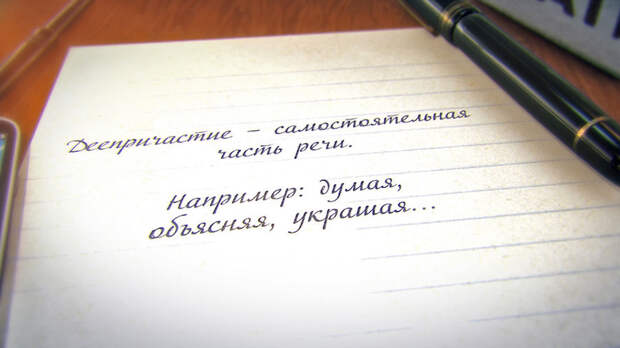 Деепричастие – самостоятельная
часть речи.
Например: думая,
объясняя, украшая...